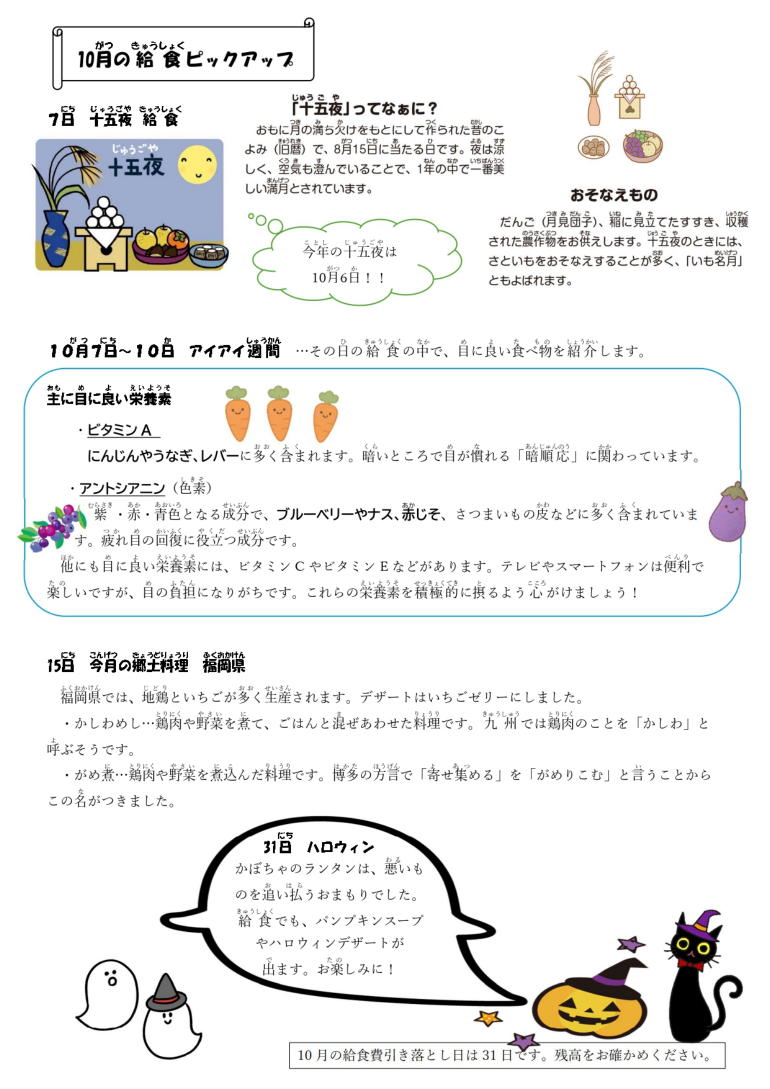 10月の給食ピックアップ
7日　十五夜　給食
じゅうごや
十五夜
「十五夜」ってなぁに？
おもに月の満ち欠けをもとにして作られた昔のこ
よみ（旧暦）で、8月15日に当たる日です。夜は涼
しく、空気も澄んでいることで、1年の中で一番美
しい満月とされています。
今年の十五夜は
10月6日！！
おそなえもの
だんご（月見団子）、稲に見立てたすすき、収穫
された農作物をお供えします。十五夜のときには、
さといもをおそなえすることが多く、「いも名月」
ともよばれます。
10月7日～10日　アイアイ週間　…その日の給食の中で、目に良い食べ物を紹介します。
主に目に良い栄養素
・ビタミンA
にんじんやうなぎ、レバーに多く含まれます。暗いところで目が慣れる「暗順応」に関わっています。
・アントシアニン（色素）
紫・赤・青色となる成分で、ブルーベリーやナス、赤じそ、さつまいもの皮などに多く含まれていま
す。疲れ目の回復に役立つ成分です。
他にも目に良い栄養素には、ビタミンCやビタミンEなどがあります。テレビやスマートフォンは便利で
楽しいですが、目の負担になりがちです。これらの栄養素を積極的に摂るよう心がけましょう！
15日　今月の郷土料理　福岡県
福岡県では、地鶏といちごが多く生産されます。デザートはいちごゼリーにしました。
・かしわめし…鶏肉や野菜を煮て、ごはんと混ぜあわせた料理です。九州では鶏肉のことを「かしわ」と
呼ぶそうです。
・がめ煮…鶏肉や野菜を煮込んだ料理です。博多の方言で「寄せ集める」を「がめりこむ」と言うことから
この名がつきました。
31日　ハロウィン
かぼちゃのランタンは、悪いも
のを追い払うおまもりでした。
給食でも、パンプキンスープ
やハロウィンデザートが
出ます。お楽しみに！
10月の給食費引き落とし日は31日です。残高をお確かめください。